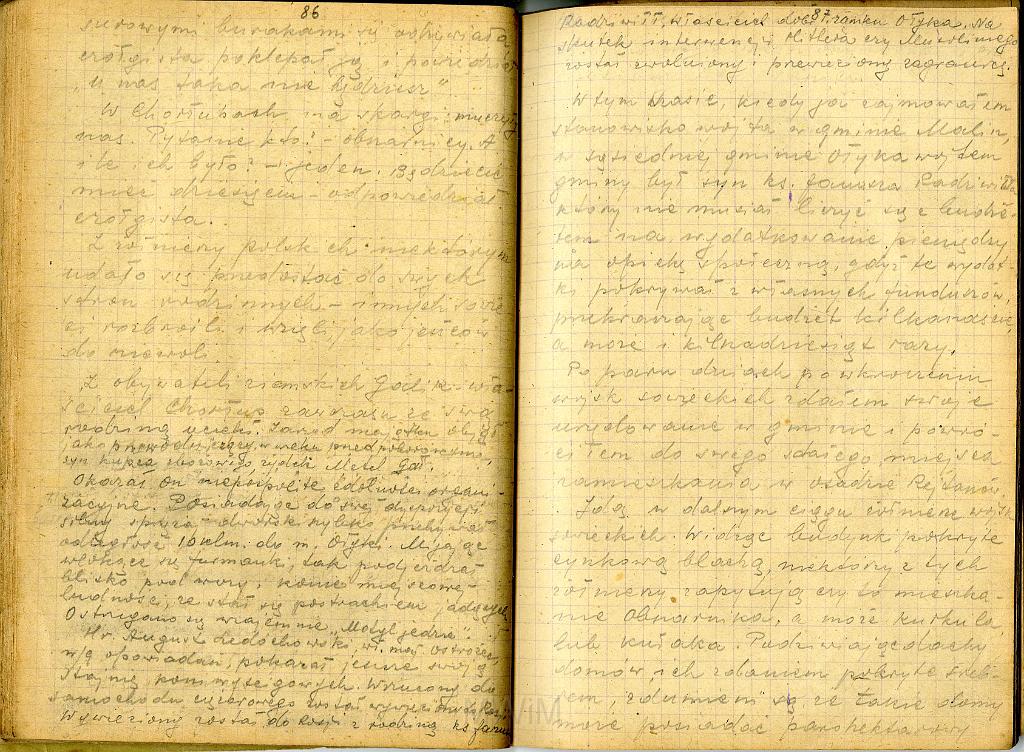 86
surowymi burakami i odzywiała
czołgista poklepał ją i powiedział
„U nas taka nie będziesz”
W Chorłupach, na skargi: męczyli
nas. Pytanie kto? – obszarnicy. A
ile ich było? – jeden. Będziecie
mieć dziesięciu odpowiedział
czołgista.
Żołnierzy polskich niektórym
udało się przedostać do swych
stron rodzinnych – innych sowie
ci rozbroili i wzięli, jako jeńców
do niewoli.
Z obywateli ziemskich wła-
ściciel Chorłup zawczasu ze swą
rodziną uciekł. Zarząd majątku objął
jako przewodniczący
syn kupca zbożowego żydek Motel Gol.
Okazał on niepospolite zdolności organi-
zacyjne. Posiadając do swej dyspozycji
silny dworski szybko przebywał
odległość 10 klm. do m. Ołyki. Mijając
wlokące się furmanki, tak podjeżdżał
blisko pod wozy, konie miejscowej
ludności, że stał się postrachem jadących.
Ostrzegano się wzajemnie „Motyl jedzie”.
Hr. August Ledóchowski, wł. maj. Ostrożec
wg opowiadań, pokazał jeszcze swoją
stajnię koni wyścigowych. Wrzucony do
samochodu ciężarowego został wywieziony do Rosji.
Wywieziony został do Rosji z rodziną ks. Janusz
87
Radziwiłł, właściciel dóbr i zamku Ołyka. Na
skutek interwencji Hitlera czy Mussoliniego
został zwolniony i przewieziony zagranicę.
W tym czasie, kiedy ja zajmowałem
stanowisko wójta w gminie Malin,
w sąsiedniej gminie Ołyka wójtem
gminy był syn ks. Janusza Radziwiłła
który nie musiał liczyć się z budże-
tem na wydatkowanie pieniędzy
na opiekę społeczną, gdyż te wydat-
ki pokrywał z własnych funduszów,
przekraczając budżet kilkanaście,
a może i kilkadziesiąt razy.
Po paru dniach po wkroczeniu
wojsk sowieckich zdałem swoje
urzędowanie w gminie i powró-
ciłem do swego stałego miejsca
zamieszkania w osadzie Rejtanów.
Idą w dalszym ciągu żołnierze wojsk
sowieckich. Widząc budynk pokryte
cynkową blachą, niektórzy z tych
żołnierzy zapytują czy to mieszka-
nie obszarnika, a może kurkula,
lub kułaka. Podziwiając dachy
domów, ich zdaniem pokryte sreb-
rem, zdumieni są, że takie domy
może posiadać parohektarowy